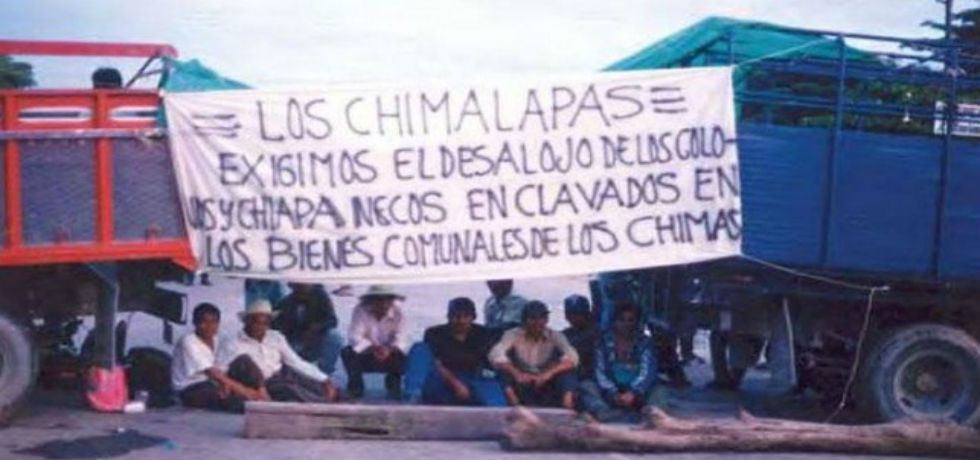 = LOS CHIMALAPAS =
EXIGIMOS EL DESALOJO DE LOS COLO-
NOS Y CHIAPANECOS ENCLAVADOS EN
LOS BIENES COMUNALES DE LOS CHIMAS